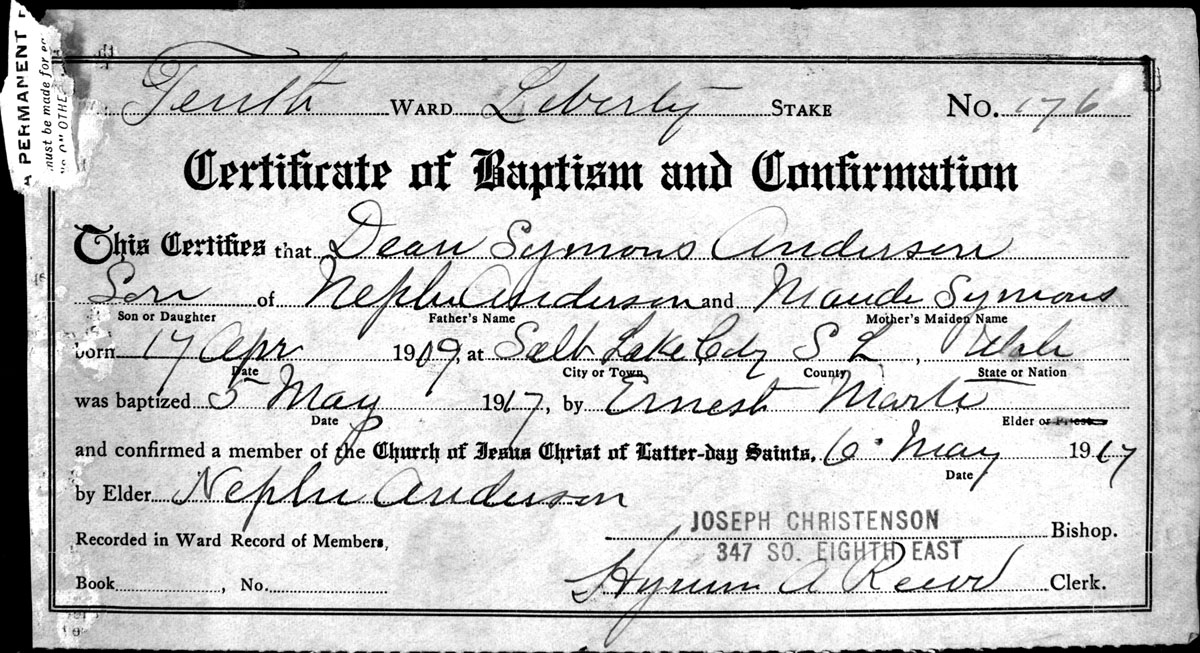 A PERMANENT
must be made for
"OTHE
Tenth WARD Liberty STAKE No. 176
Certificate of Baptism and Confirmation
This Certifies that Dean Symons Anderson
Son of Nephi Anderson and Maude Symons
Son or Daughter Father's Name Mother's Maiden Name
born 17 Apr 1909, at Salt Lake City S L, Utah
Date City or Town County State or Nation
was baptized 5 May 1917, by Ernest Marti
Date Elder or Priest
and confirmed a member of the Church of Jesus Christ of Latter-day Saints, 6 May 1917
Date
by Elder Nephi Anderson
JOSEPH CHRISTENSON Bishop.
Recorded in Ward Record of Members,
347 SO. EIGHTH EAST
Book , No. Hyrum A Clerk.